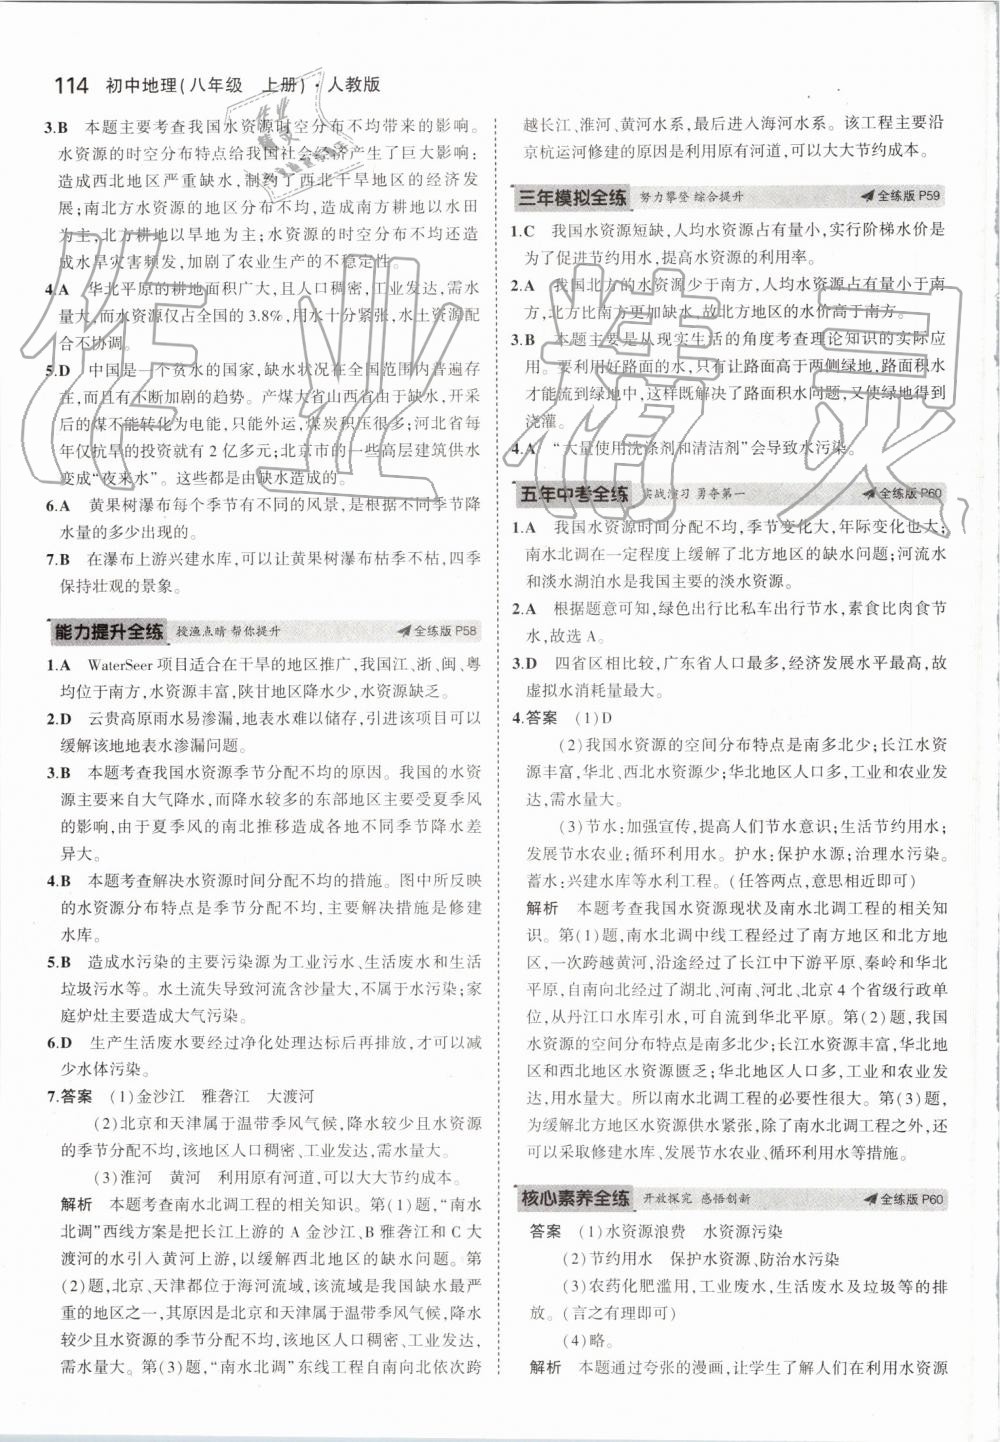 114 初中地理(八年级 上册)·人教版
3.B 本题主要考查我国水资源时空分布不均带来的影响。
水资源的时空分布特点给我国社会经济产生了巨大影响;
造成西北地区严重缺水,制约了西北干旱地区的经济发
展;南北方水资源的地区分布不均,造成南方耕地以水田
为主,北方耕地以旱地为主;水资源的时空分布不均还造
成水旱灾害频发,加剧了农业生产的不稳定性。
4.A 华北平原的耕地面积广大,且人口稠密,工业发达,需水
量大,而水资源仅占全国的3.8%,用水十分紧张,水土资源配
合不协调。
5.D 中国是一个贫水的国家,缺水状况在全国范围内普遍存
在,而且有不断加剧的趋势。产煤大省山西省由于缺水,开采
后的煤不能转化为电能,只能外运,煤炭积压很多;河北省每
年仅抗旱的投资就有2亿多元;北京市的一些高层建筑供水
变成“夜来水”。这些都是由缺水造成的。
6.A 黄果树瀑布每个季节有不同的风景,是根据不同季节降
水量的多少出现的。
7.B 在瀑布上游兴建水库,可以让黄果树瀑布枯季不枯,四季
保持壮观的景象。
能力提升全练 授渔点睛 帮你提升 全练版P58
1.A WaterSeer项目适合在干旱的地区推广,我国江、浙、闽、粤
均位于南方,水资源丰富,陕甘地区降水少,水资源缺乏。
2.D 云贵高原雨水易渗漏,地表水难以储存,引进该项目可以
缓解该地地表水渗漏问题。
3.B 本题考查我国水资源季节分配不均的原因。我国的水资
源主要来自大气降水,而降水较多的东部地区主要受夏季风
的影响,由于夏季风的南北推移造成各地不同季节降水差
异大。
4.B 本题考查解决水资源时间分配不均的措施。图中所反映
的水资源分布特点是季节分配不均,主要解决措施是修建
水库。
5.B 造成水污染的主要污染源为工业污水、生活废水和生活
垃圾污水等。水土流失导致河流含沙量大,不属于水污染;家
庭炉灶主要造成大气污染。
6.D 生产生活废水要经过净化处理达标后再排放,才可以减
少水体污染。
7.答案 (1)金沙江 雅砻江 大渡河
(2)北京和天津属于温带季风气候,降水较少且水资源
的季节分配不均,该地区人口稠密,工业发达,需水量大。
(3)淮河 黄河 利用原有河道,可以大大节约成本。
解析 本题考查南水北调工程的相关知识。第(1)题,“南水
北调”西线方案是把长江上游的A金沙江、B雅砻江和C大
渡河的水引入黄河上游,以缓解西北地区的缺水问题。第
(2)题,北京、天津都位于海河流域,该流域是我国缺水最严
重的地区之一,其原因是北京和天津属于温带季风气候,降水
较少且水资源的季节分配不均,该地区人口稠密、工业发达,
需水量大。第(3)题,“南水北调”东线工程自南向北依次跨
越长江、淮河、黄河水系,最后进入海河水系。该工程主要沿
京杭运河修建的原因是利用原有河道,可以大大节约成本。
三年模拟全练 努力攀登 综合提升 全练版P59
1.C 我国水资源短缺,人均水资源占有量小,实行阶梯水价是
为了促进节约用水,提高水资源的利用率。
2.A 我国北方的水资源少于南方,人均水资源占有量小于南
方,北方比南方更加缺水,故北方地区的水价高于南方。
3.B 本题主要是从现实生活的角度考查理论知识的实际应
用。要利用好路面的水,只有让路面高于两侧绿地,路面积水
才能流到绿地中,这样既解决了路面积水问题,又使绿地得到
浇灌。
4.A “大量使用洗涤剂和清洁剂”会导致水污染。
五年中考全练 实战演习 勇夺第一 全练版P60
1.A 我国水资源时间分配不均,季节变化大,年际变化也大;
南水北调在一定程度上缓解了北方地区的缺水问题;河流水
和淡水湖泊水是我国主要的淡水资源。
2.A 根据题意可知,绿色出行比私车出行节水,素食比肉食节
水,故选A。
3.D 四省区相比较,广东省人口最多,经济发展水平最高,故
虚拟水消耗量最大。
4.答案 (1)D
(2)我国水资源的空间分布特点是南多北少;长江水资
源丰富,华北、西北水资源少;华北地区人口多,工业和农业发
达,需水量大。
(3)节水:加强宣传,提高人们节水意识;生活节约用水;
发展节水农业;循环利用水。护水:保护水源;治理水污染。
蓄水:兴建水库等水利工程。(任答两点,意思相近即可)
解析 本题考查我国水资源现状及南水北调工程的相关知
识。第(1)题,南水北调中线工程经过了南方地区和北方地
区,一次跨越黄河,沿途经过了长江中下游平原、秦岭和华北
平原,自南向北经过了湖北、河南、河北、北京4个省级行政单
位,从丹江口水库引水,可自流到华北平原。第(2)题,我国
水资源的空间分布特点是南多北少;长江水资源丰富,华北地
区和西北地区水资源匮乏;华北地区人口多,工业和农业发
达,用水量大。所以南水北调工程的必要性很大。第(3)题,
为缓解北方地区水资源供水紧张,除了南水北调工程之外,还
可以采取修建水库、发展节水农业、循环利用水等措施。
核心素养全练 开放探究 感悟创新 全练版P60
答案 (1)水资源浪费 水资源污染
(2)节约用水 保护水资源,防治水污染
(3)农药化肥滥用,工业废水,生活废水及垃圾等的排
放。(言之有理即可)
(4)略。
解析 本题通过夸张的漫画,让学生了解人们在利用水资源
作业精灵